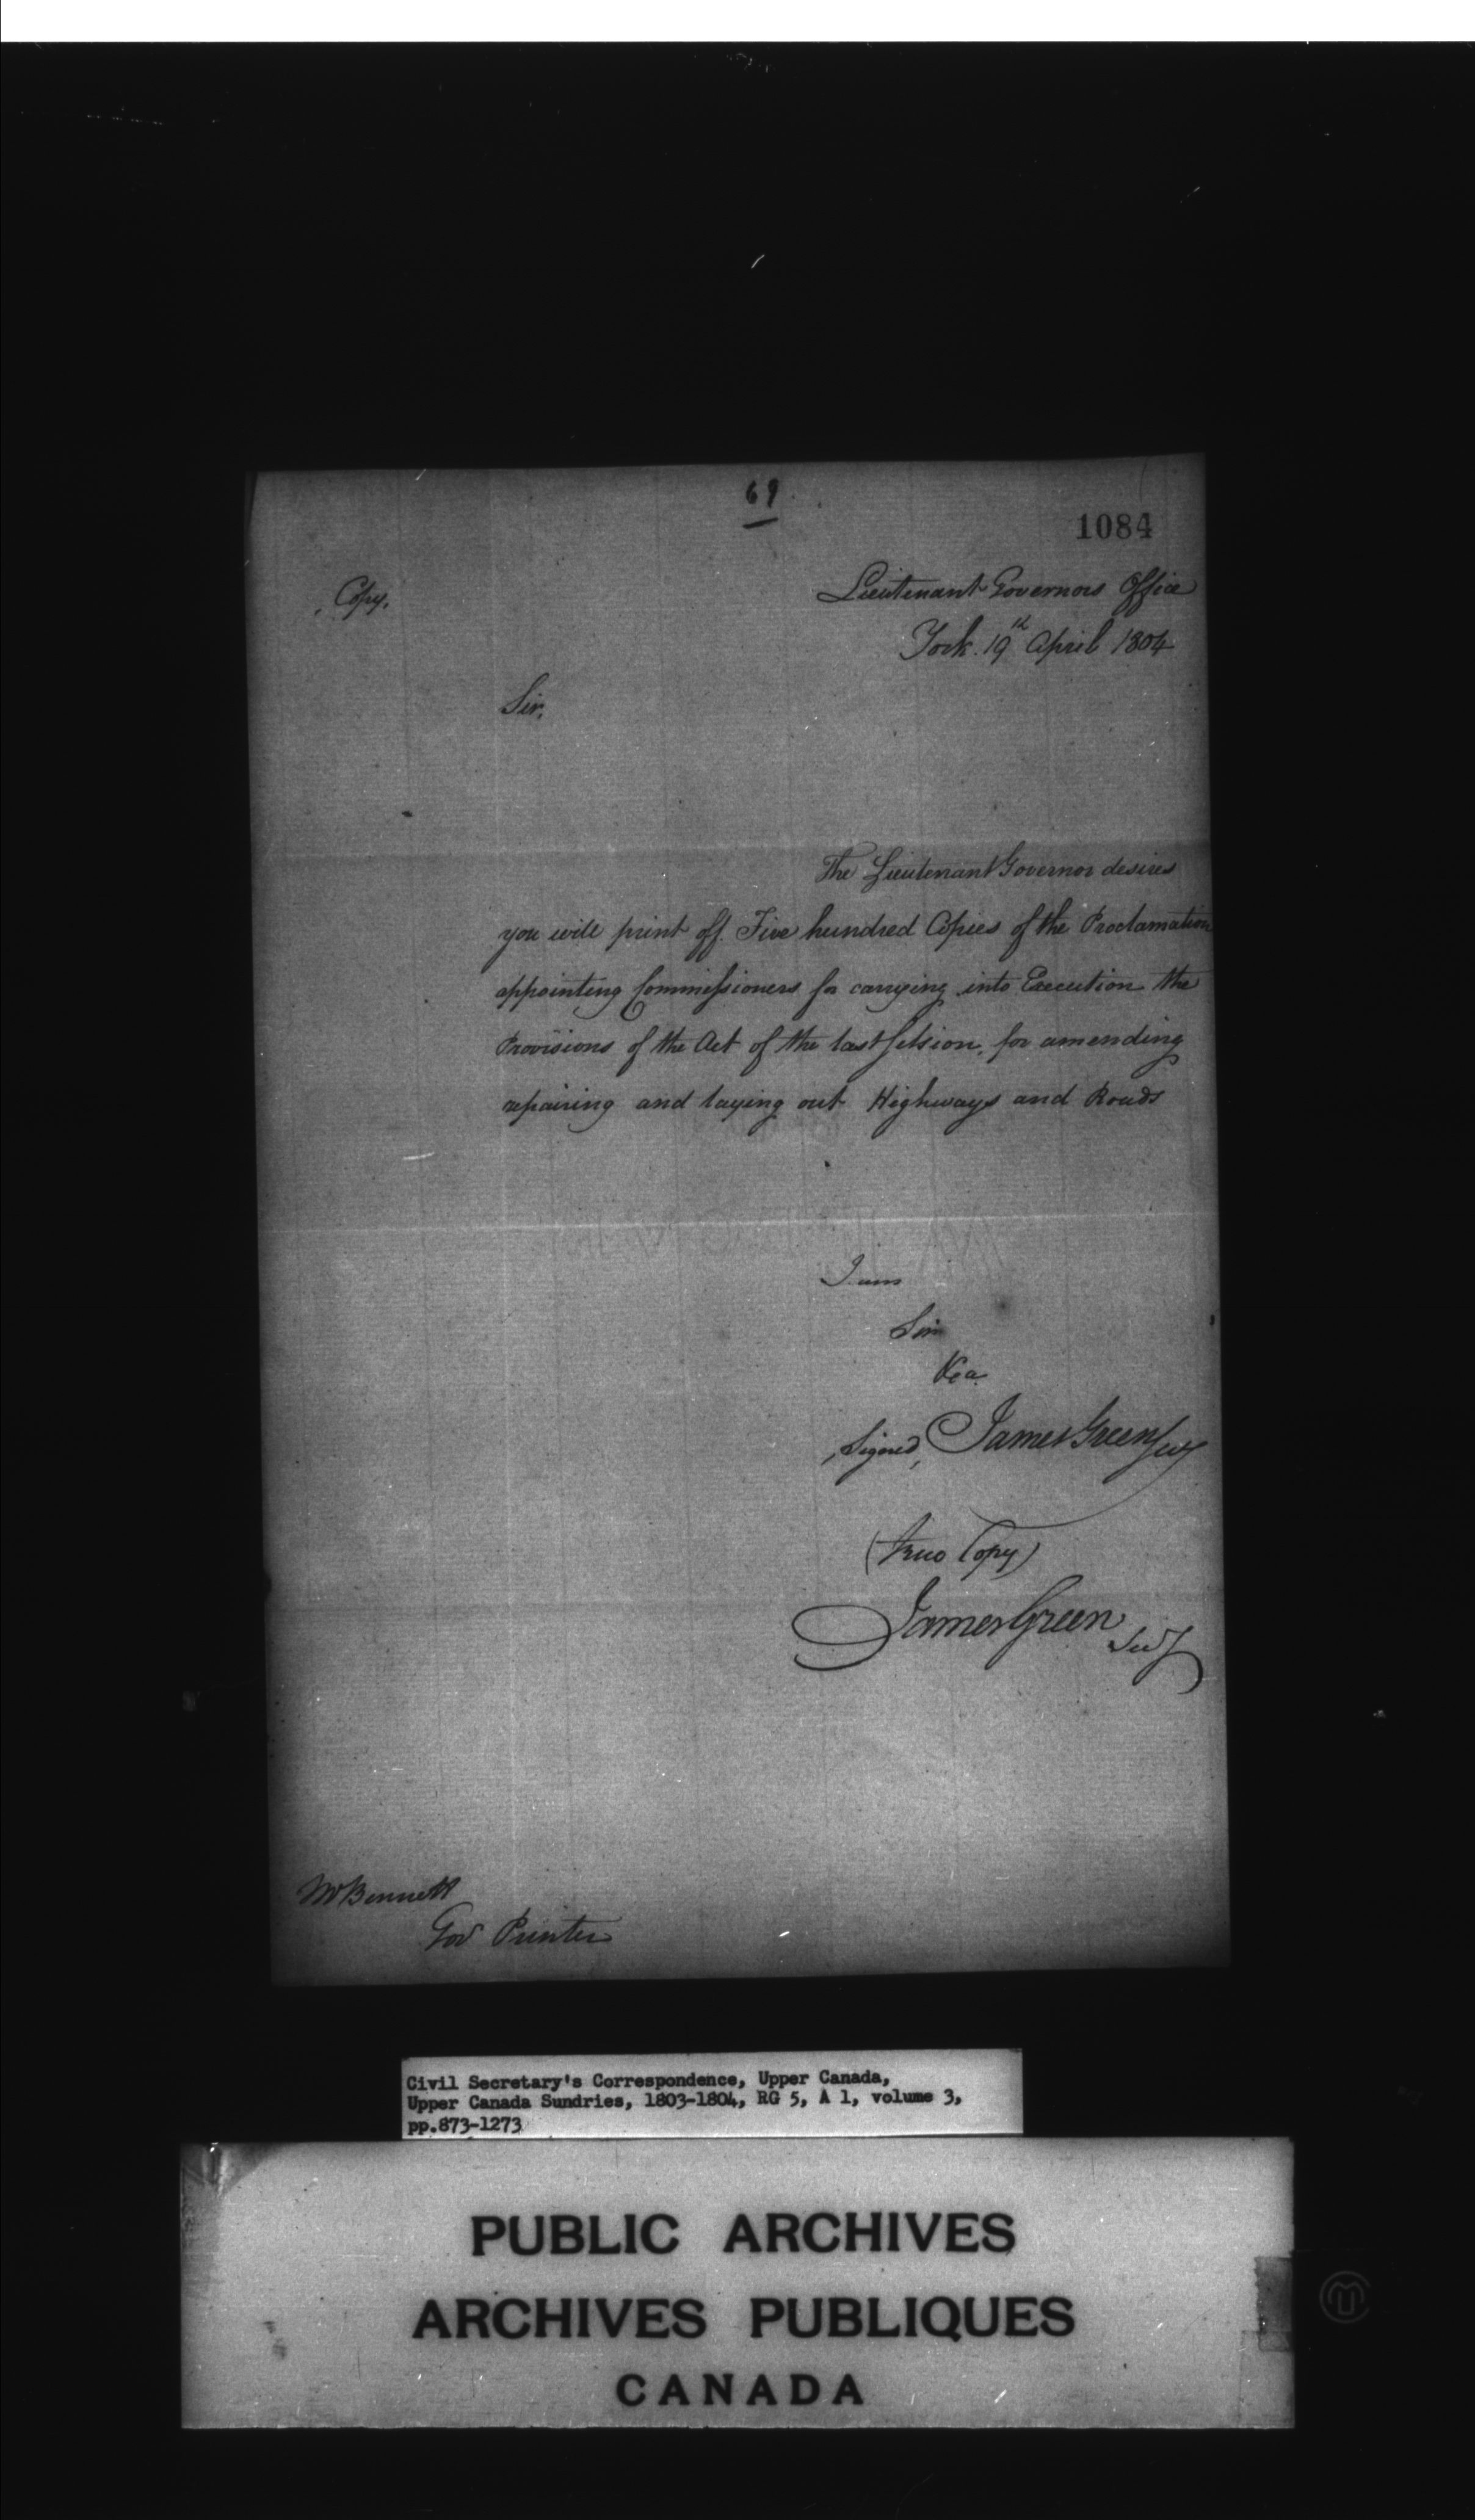 69
1084
Copy.
Lieutenant Governors Office
York. 19th April 1804
Sir,
The Lieutenant Governor desires
you will print off Five hundred Copies of the Proclamation
appointing Commissioners for carrying into Execution the
Provisions of the Act of the last Session, for amending
repairing and laying out Highways and Roads
I am
Sir
&ca
Signed, James Green Secy
(true Copy)
James Green Secy
Mr Bennett
Govt Printer
Civil Secretary's Correspondence, Upper Canada,
Upper Canada Sundries, 1803-1804, RG 5, A 1, volume 3,
pp.873-1273
PUBLIC ARCHIVES
ARCHIVES PUBLIQUES
CANADA